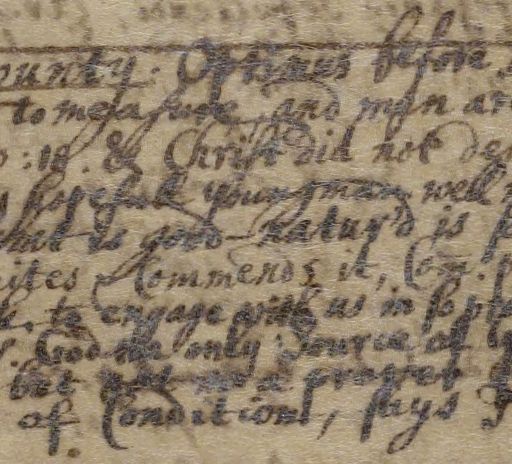 ounty. Optimus before
to measure and men are
: 18. & Christ did not den
hopefull young man well n
that is good-natur'd is
ites Commends it, Com.
to engage with us in so
God the only Source of
but not a proper
of Conditions, says